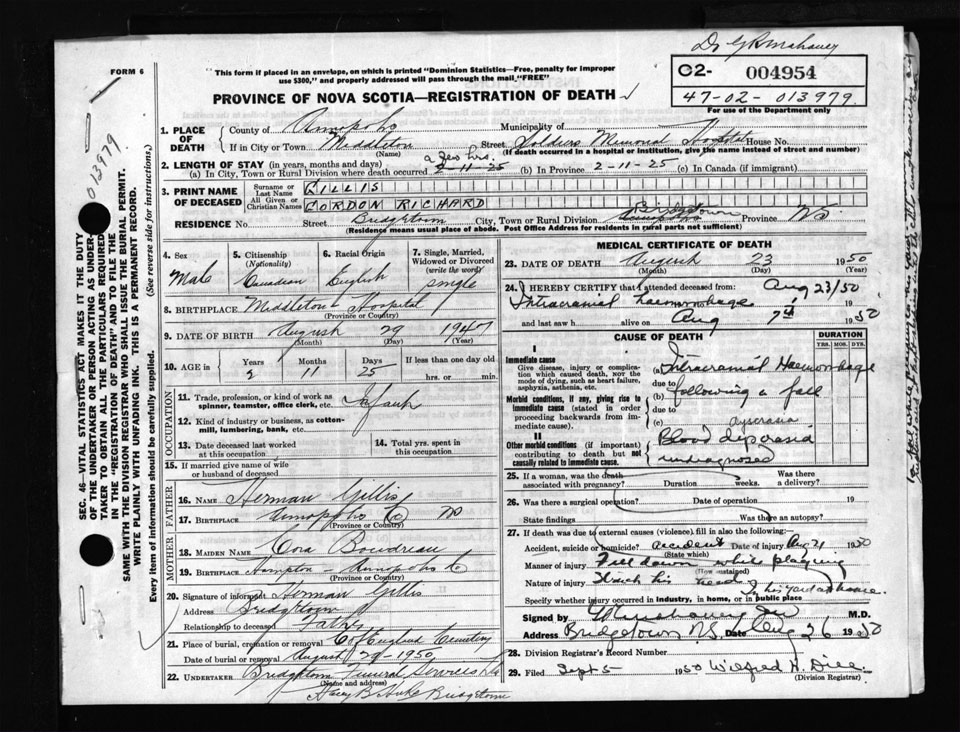 Dr G R Mahaney
FORM 6
This form if placed in an envelope, on which is printed "Dominion Statistics—Free, penalty for improper
use $300," and properly addressed will pass through the mail "FREE"
02- 004954
47-02-013979
For use of the Department only
PROVINCE OF NOVA SCOTIA—REGISTRATION OF DEATH
013979
1. PLACE OF DEATH
County of Annapolis Municipality of
If in City or Town Middleton Street Soldiers Memorial Hospital House No.
(Name) (If death occurred in a hospital or institution, give the name instead of street and number)
2. LENGTH OF STAY (in years, months and days) a few hrs.
(a) In City, Town or Rural Division where death occurred 2-11-25 (b) In Province 2-11-25 (c) In Canada (if immigrant)
3. PRINT NAME OF DECEASED
Surname or Last Name GILLIS
All Given or Christian Names GORDON RICHARD
RESIDENCE No. Street Bridgetown City, Town or Rural Division Bridgetown Province NS
(Residence means usual place of abode. Post Office Address for residents in rural parts not sufficient)
4. Sex
Male
5. Citizenship (Nationality)
Canadian
6. Racial Origin
English
7. Single, Married, Widowed or Divorced (write the word)
single
8. BIRTHPLACE Middleton Hospital
(Province or Country)
9. DATE OF BIRTH August 29 1947
(Month) (Day) (Year)
10. AGE in Years 2 Months 11 Days 25 If less than one day old
hrs. or min.
OCCUPATION
11. Trade, profession, or kind of work as spinner, teamster, office clerk, etc. Infant
12. Kind of industry or business, as cotton-mill, lumbering, bank, etc.
13. Date deceased last worked at this occupation
14. Total yrs. spent in this occupation
15. If married give name of wife or husband of deceased
FATHER
16. Name Herman Gillis
17. Birthplace Annapolis Co NS
(Province or Country)
MOTHER
18. Maiden Name Cora Boudreau
19. Birthplace Hampton - Annapolis Co
(Province or Country)
20. Signature of informant Herman Gillis
Address Bridgetown
Relationship to deceased Father
21. Place of burial, cremation or removal C of England Cemetery
Date of burial or removal August 29-1950
22. UNDERTAKER Bridgetown Funeral Services Ltd
(Name and address)
Bridgetown
MEDICAL CERTIFICATE OF DEATH
23. DATE OF DEATH August 23 1950
(Month) (Day) (Year)
24. I HEREBY CERTIFY that I attended deceased from: Aug 23/50
Intracranial haemorrhage 19
and last saw h alive on Aug 7th 1950
CAUSE OF DEATH
DURATION
YRS. MOS. DYS.
I
Immediate cause
Give disease, injury or complication which caused death, not the mode of dying, such as heart failure, asphyxia, asthenia, etc.
(a) Intracranial Haemorrhage
due to
Morbid conditions, if any, giving rise to immediate cause (stated in order proceeding backwards from immediate cause).
(b) following a fall
due to
(c) dyscrasia
II
Other morbid conditions (if important) contributing to death but not causally related to immediate cause.
Blood dyscrasia
undiagnosed
25. If a woman, was the death associated with pregnancy? Duration weeks. Was there a delivery?
26. Was there a surgical operation? Date of operation 19
State findings Was there an autopsy?
27. If death was due to external causes (violence) fill in also the following:
Accident, suicide or homicide? accident Date of injury Aug 21 1950
(State which)
Manner of injury Fell down while playing
(How sustained)
Nature of injury Struck his head
in his yard at house.
Specify whether injury occurred in industry, in home, or in public place
Signed by M.D.
Address Bridgetown N.S. Date Aug 26 1950
28. Division Registrar's Record Number
29. Filed Sept 5 1950 Wilfred H. Dill
(Division Registrar)
SEC. 46—VITAL STATISTICS ACT MAKES IT THE DUTY
OF THE UNDERTAKER OR PERSON ACTING AS UNDERTAKER
TO OBTAIN ALL THE PARTICULARS REQUIRED
IN THE "REGISTRATION OF DEATH" AND TO FILE THE
SAME WITH THE DIVISION REGISTRAR WHO SHALL ISSUE THE BURIAL PERMIT.
WRITE PLAINLY WITH UNFADING INK. THIS IS A PERMANENT RECORD.
Every item of information should be carefully supplied. (See reverse side for instructions.)